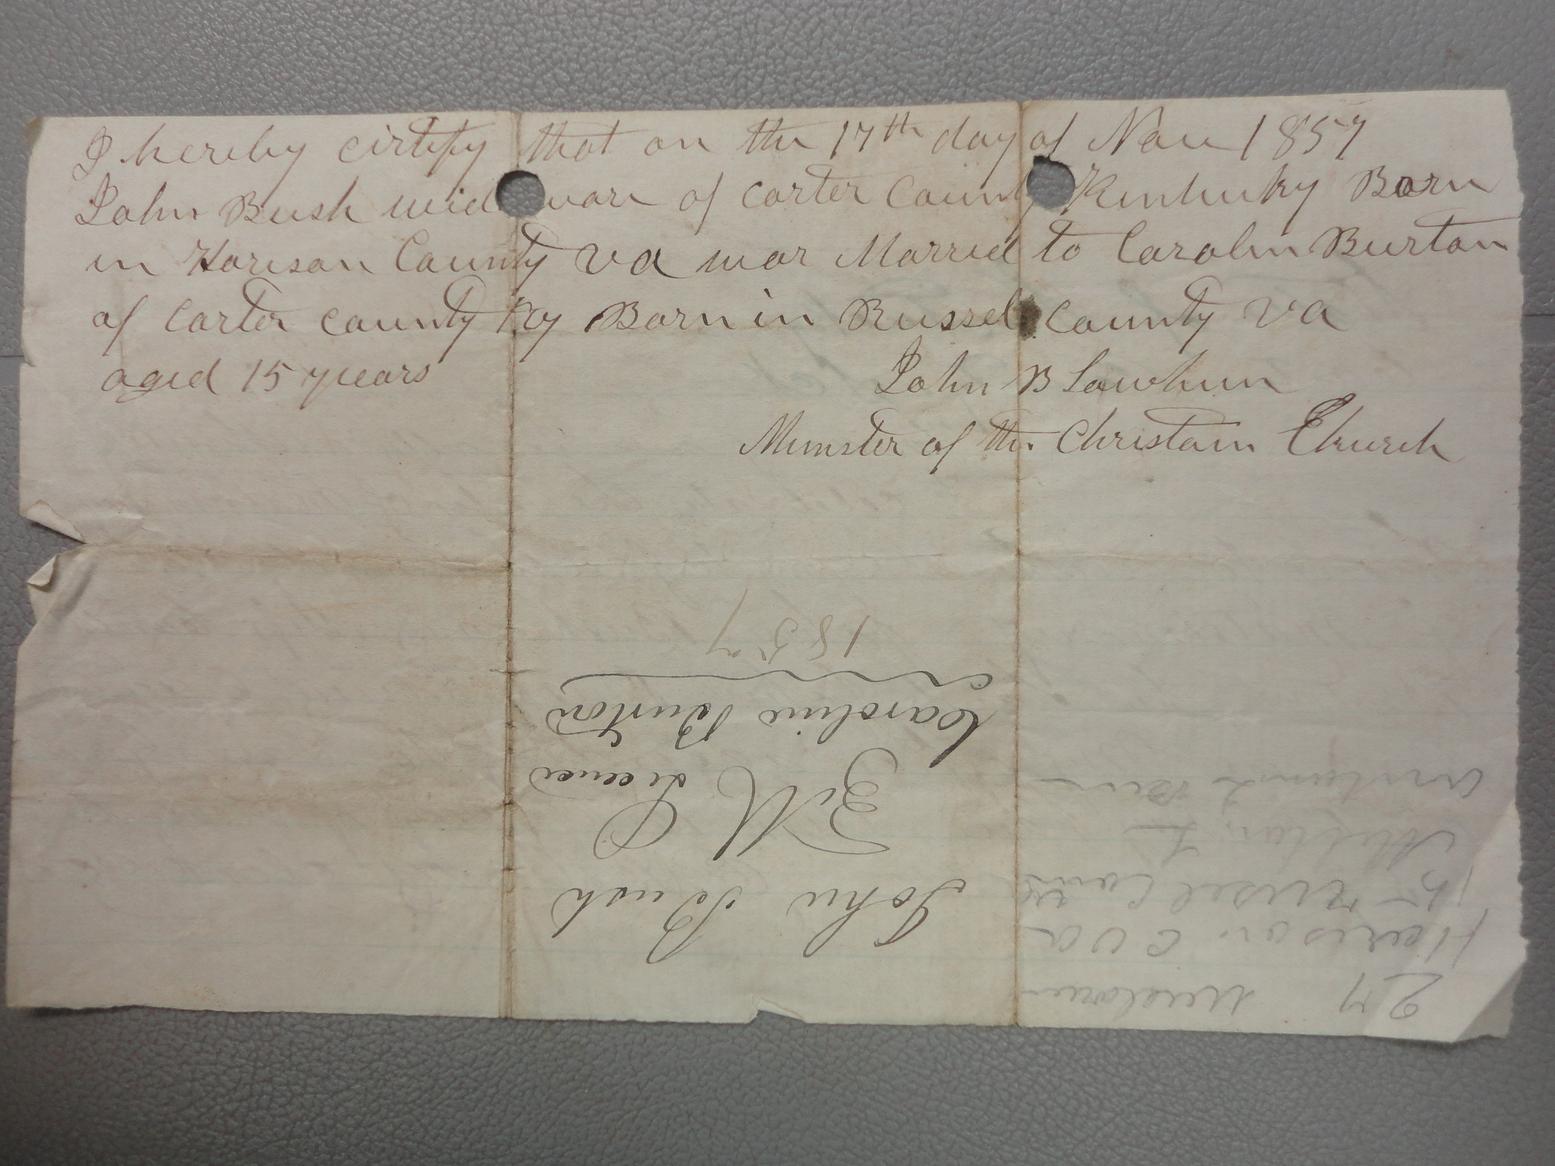 I hereby certify that on the 17th day of Nov 1857
John Bush wid war of Carter County Kentucky Born
in Harison County va war Married to Carolin Burton
of Carter county Ky Born in Russel county va
aged 15 years
John B Lawhun
Minster of the Christain Church
John Bush
To M L
Licence
Caroline Burton
1857
27
Harison C va
15 Russel County